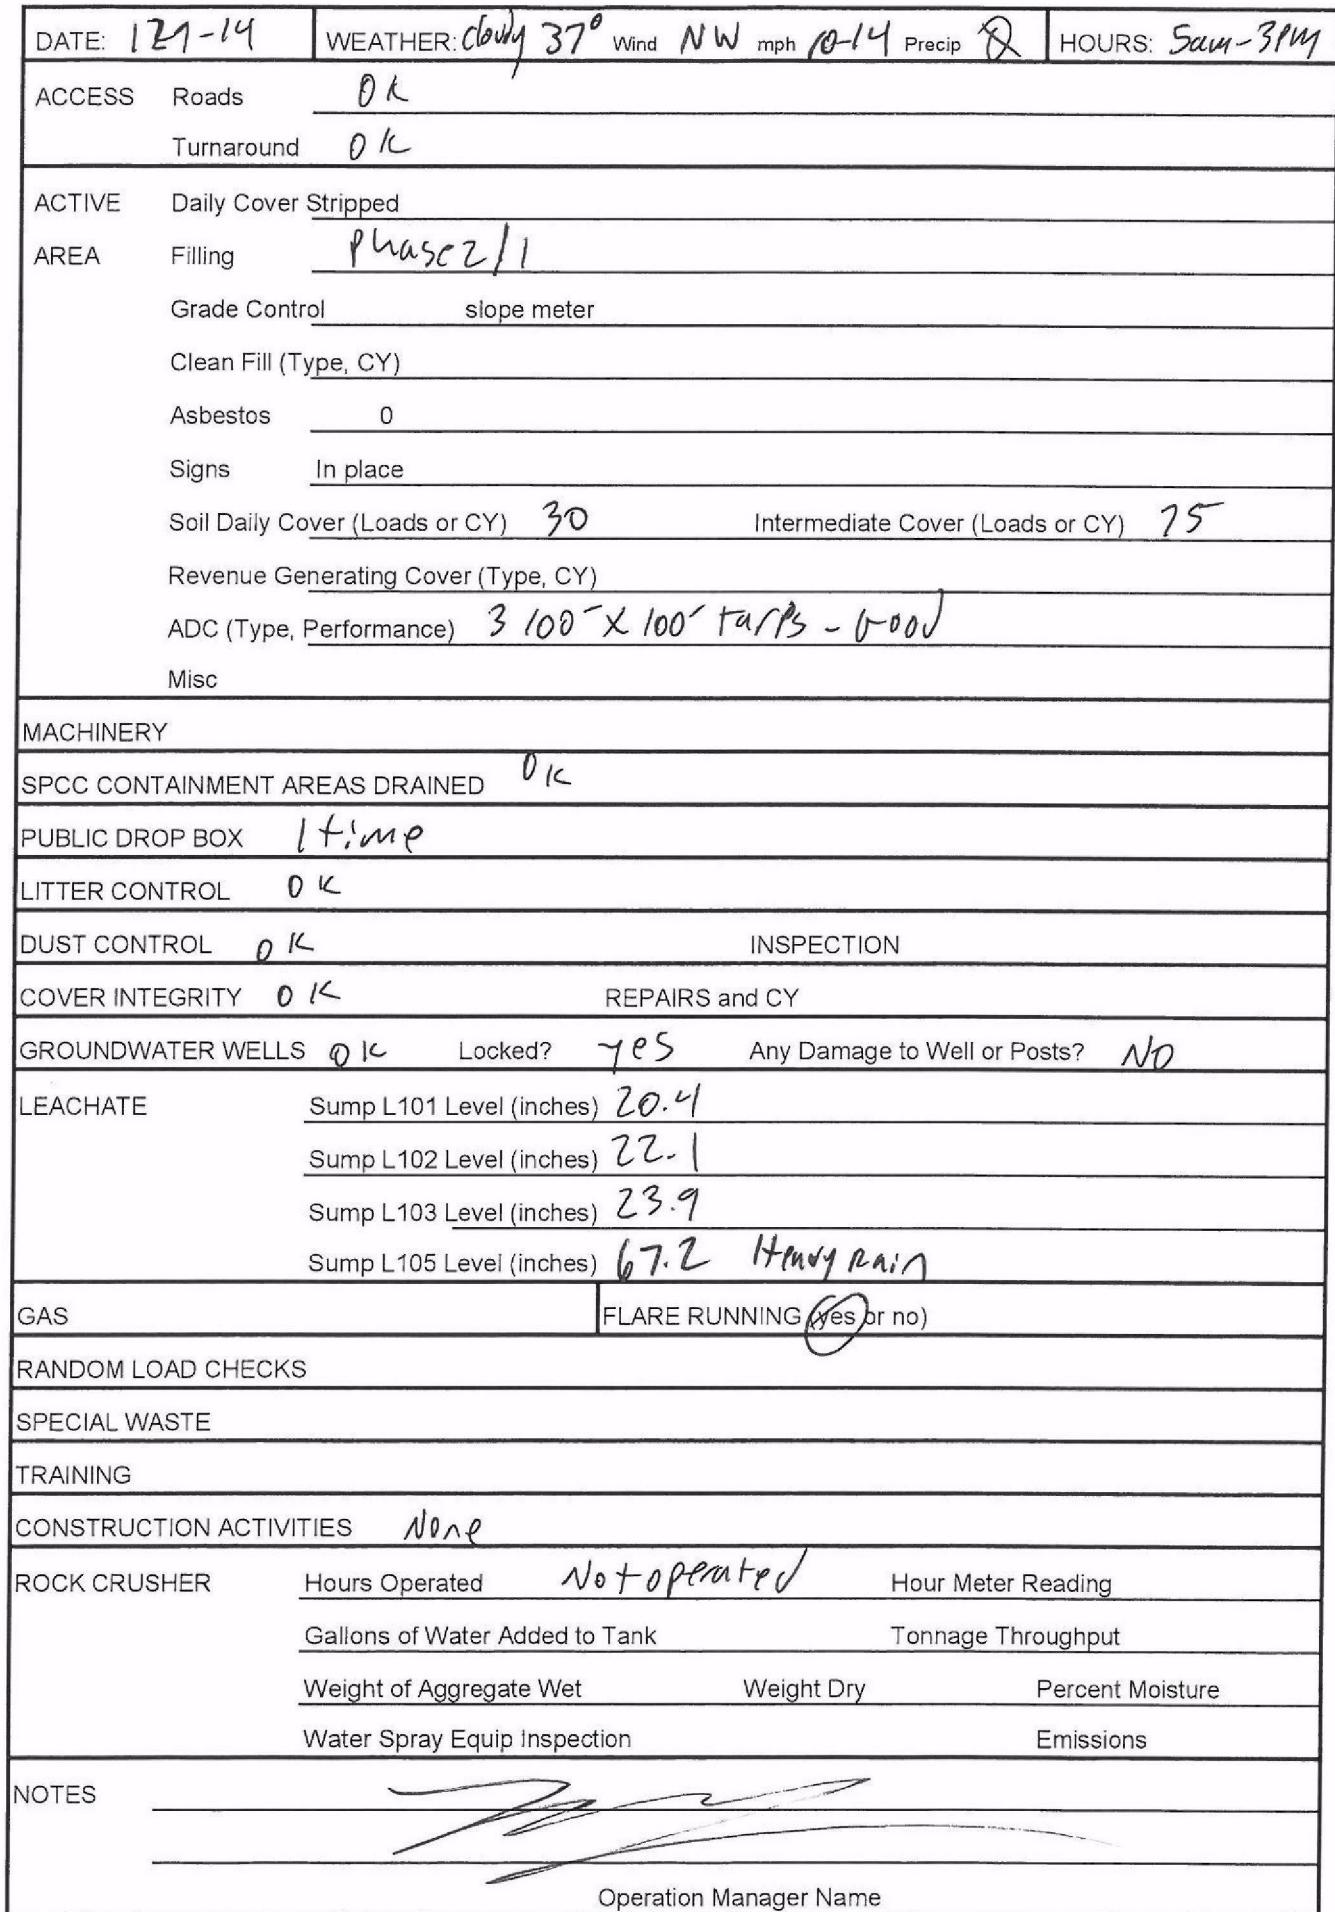 DATE: 129-14 WEATHER: Cloudy 37° Wind NW mph 10-14 Precip 0 HOURS: 5am-3PM
ACCESS Roads OK
Turnaround OK
ACTIVE Daily Cover Stripped
AREA Filling Phase 2/1
Grade Control slope meter
Clean Fill (Type, CY)
Asbestos 0
Signs In place
Soil Daily Cover (Loads or CY) 30 Intermediate Cover (Loads or CY) 75
Revenue Generating Cover (Type, CY)
ADC (Type, Performance) 3 100' X 100' tarps - Good
Misc
MACHINERY
SPCC CONTAINMENT AREAS DRAINED OK
PUBLIC DROP BOX 1 time
LITTER CONTROL OK
DUST CONTROL OK INSPECTION
COVER INTEGRITY OK REPAIRS and CY
GROUNDWATER WELLS OK Locked? yes Any Damage to Well or Posts? NO
LEACHATE Sump L101 Level (inches) 20.4
Sump L102 Level (inches) 22.1
Sump L103 Level (inches) 23.9
Sump L105 Level (inches) 67.2 Heavy Rain
GAS FLARE RUNNING (yes or no)
RANDOM LOAD CHECKS
SPECIAL WASTE
TRAINING
CONSTRUCTION ACTIVITIES None
ROCK CRUSHER Hours Operated Not operated Hour Meter Reading
Gallons of Water Added to Tank Tonnage Throughput
Weight of Aggregate Wet Weight Dry Percent Moisture
Water Spray Equip Inspection Emissions
NOTES
Operation Manager Name